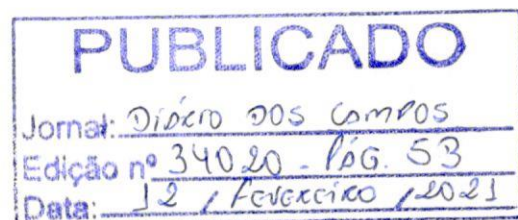 PUBLICADO
Jornal: DIÁRIO DOS CAMPOS
Edição nº 34020 - PÁG. 53
Data: 12 / FEVEREIRO / 2021